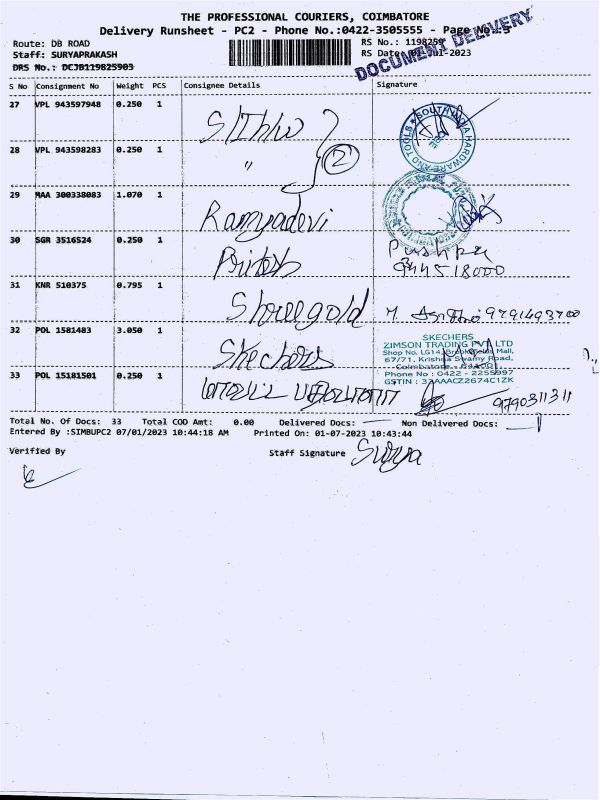 THE PROFESSIONAL COURIERS, COIMBATORE
Delivery Runsheet - PC2 - Phone No.:0422-3505555 - Page No.:3
Route: DB ROAD RS No.: 1198259
Staff: SURYAPRAKASH RS Date: 01-Jul-2023
DRS No.: DCJB119825903 DOCUMENT DELIVERY
S No Consignment No Weight PCS Consignee Details Signature
27 VPL 943597948 0.250 1
28 VPL 943598283 0.250 1 " 2
29 MAA 300338083 1.070 1 Ramyadevi
30 SGR 3516524 0.250 1 Pritesh Pushpa
31 KNR 510375 0.795 1 Shreegold
32 POL 1581483 3.050 1 Skechers
SKECHERS
ZIMSON TRADING PVT LTD
Shop No. LG14, Brookefields Mall,
67/71, Krishna Swamy Road,
Coimbatore
Phone No : 0422 - 2255997
GSTIN : 33AAACZ2674C1ZK
33 POL 15181501 0.250 1 9790311311
Total No. Of Docs: 33 Total COD Amt: 0.00 Delivered Docs: Non Delivered Docs:
Entered By :SIMBUPC2 07/01/2023 10:44:18 AM Printed On: 01-07-2023 10:43:44
Verified By Staff Signature Surya